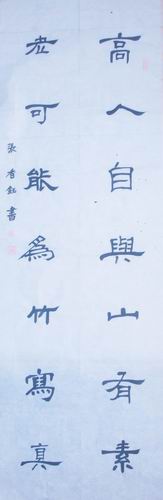 高人自與山有素
老可能爲竹寫真
張書